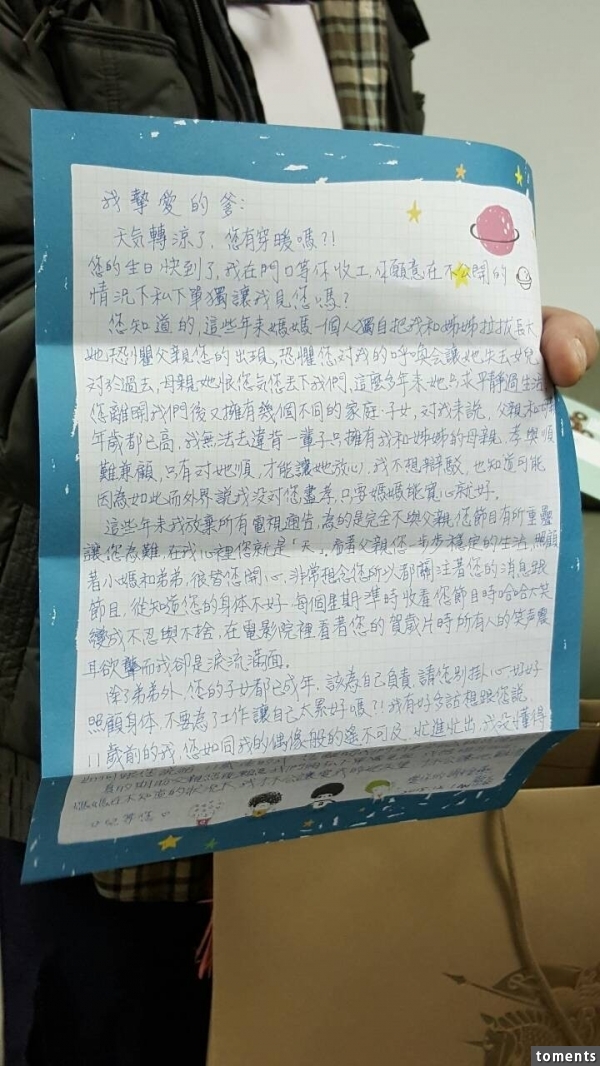 我摯愛的爹:
天氣轉涼了，您有穿暖嗎?!
您的生日快到了，我在門口等你收工，你願意在不公開的
情況下私下單獨讓我見您嗎?
您知道的，這些年來媽媽一個人獨自把我和姊姊拉拔長大
她恐懼父親您的出現，恐懼您對我的呼喚會讓她失去女兒
對於過去，母親她恨您氣您丟下我們，這麼多年來她只求平靜過生活
您離開我們後又擁有幾個不同的家庭.子女，對我來說，父親和
年歲都已高，我無法去違背一輩子只擁有我和姊姊的母親，孝與順
難兼顧，只有對她順，才能讓她放心，我不想辯駁，也知道可能
因為如此而外界說我沒對您盡孝，只要媽媽能寬心就好。
這些年來我放棄所有電視通告，為的是完全不與父親您節目有所重疊
讓您為難，在我心裡您就是「天」，看著父親您一步步穩定的生活，照顧
著小媽和弟弟，很替您開心，非常想念您所以都關注著您的消息跟
節目，從知道您的身体不好，每個星期準時收看您節目時哈哈大笑
變成不忍與不捨，在電影院裡看著您的賀歲片時所有人的笑声震
耳欲聾而我卻是淚流滿面。
除了弟弟外，您的子女都已成年，該為自己負責，請您別掛心，好好
照顧身体，不要為了工作讓自己太累好嗎?!我有好多話想跟您說，
11歲前的我，您如同我的偶像般的遙不可及，忙進忙出，我沒懂得
toments